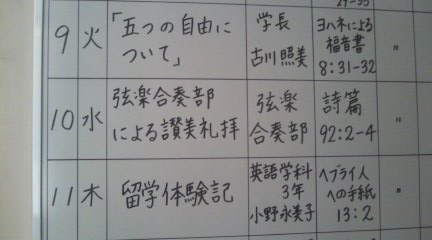 29-35
9 火 「五つの自由に
ついて」
学長
古川照美
ヨハネによる
福音書
8:31-32
〃
10 水 弦楽合奏部
による讃美礼拝
弦楽
合奏部
詩篇
92:2-4
〃
11 木 留学体験記
英語学科
3年
小野永美子
ヘブライ人
への手紙
13:2
〃